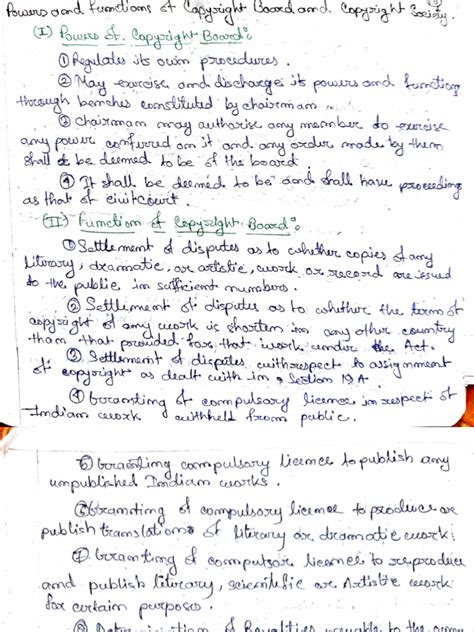 Powers and functions of Copyright Board and Copyright Society.
(I) Powers of Copyright Board:
① Regulates its own procedures.
② May exercise and discharge its powers and function
through benches constituted by chairman.
③ Chairman may authorise any member to exercise
any power conferred on it and any order made by them
shall be deemed to be of the board.
④ It shall be deemed to be and shall have proceeding
as that of civil court.
(II) Function of Copyright Board:
① Settlement of disputes as to whether copies of any
literary, dramatic, or artistic, work or record are issued
to the public in sufficient numbers.
② Settlement of disputes as to whether the term of
copyright of any work is shorten in any other country
than that provided for that work under the Act.
③ Settlement of disputes with respect to assignment
of copyright as dealt with in Section 19A.
④ Granting of compulsory licence in respect of
Indian work withheld from public.
⑤ Granting compulsory licence to publish any
unpublished Indian works.
⑥ Granting of compulsory licence to produce or
publish translations of literary or dramatic work.
⑦ Granting of compulsory licence to reproduce
and publish literary, scientific or Artistic work
for certain purposes.
of Royalties to the